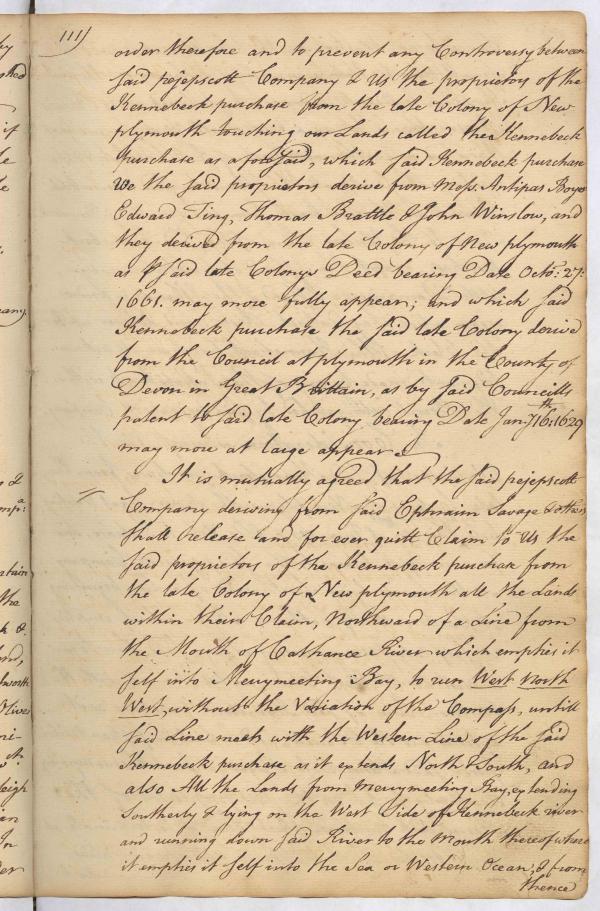 111)
order therefore and to prevent any Controversy between
said pejepscott Company & Us the proprietors of the
Kennebeck purchase from the late Colony of New
plymouth touching our Lands called the Kennebeck
purchase as aforesaid, which said Kennebeck purchase
We the said proprietors derive from Mess. Antipas Boyes
Edward Ting, Thomas Brattle & John Winslow, and
they derived from the late Colony of New plymouth
as p said late Colonys Deed bearing Date Octo: 27:
1661. may more fully appear; and which said
Kennebeck purchase the said late Colony derive
from the Council at plymouth in the County of
Devon in Great Brittain, as by said Councills
patent to said late Colony bearing Date Jany 16th: 1629
may more at large appear.
It is mutually agreed that the said pejepscott
Company deriving from said Ephraim Savage & others
shall release and for ever quitt Claim to Us the
said proprietors of the Kennebeck purchase from
the late Colony of New plymouth all the Lands
within their Claim, Northward of a Line from
the Mouth of Cathance River which empties it
self into Merrymeeting Bay, to run West North
West, without the Variation of the Compass, untill
said Line meets with the Western Line of the said
Kennebeck purchase as it extends North & South, and
also All the Lands from Merrymeeting Bay, extending
Southerly & lying on the West Side of Kennebeck river
and running down said River to the Mouth thereof where
it empties it self into the Sea or Western Ocean, & from
thence